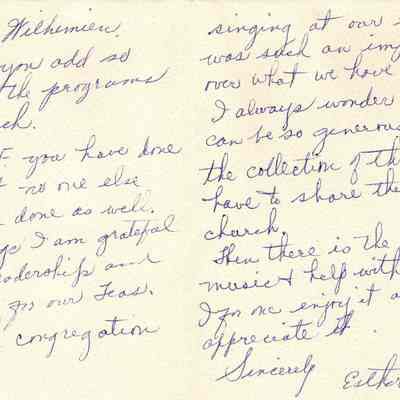 Wilhemien.
you add so
the programs
ch.
you have done
no one else
done as well.
I am grateful
leadership and
for our Teas.
congregation
singing at our
was such an imp
over what we have
I always wonder
can be so generous
the collection of th
have to share the
church.
Then there is the
music & help with
I for one enjoy it a
appreciate it.
Sincerely
Esther